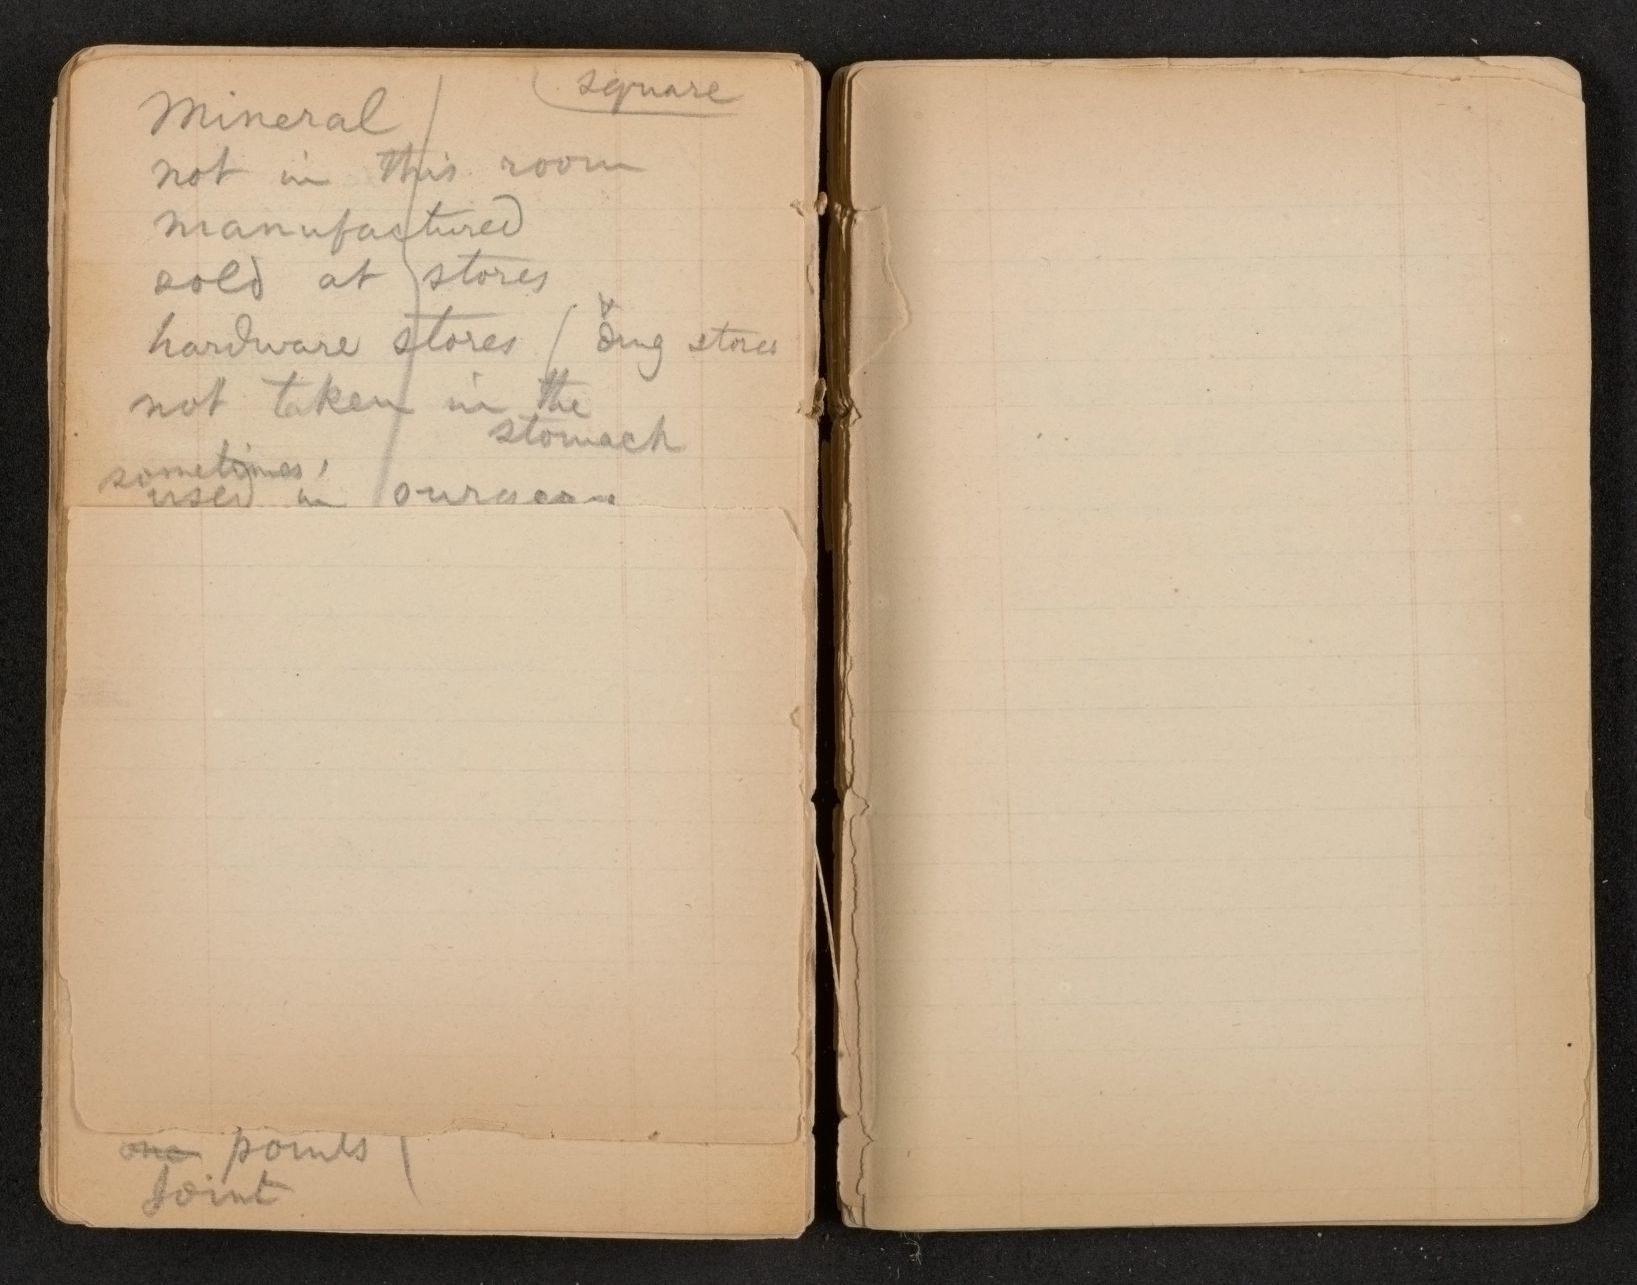 square
Mineral
not in this room
manufactured
sold at stores
hardware stores / drug stores
not taken in the
stomach
sometimes
used in
one points
Joint